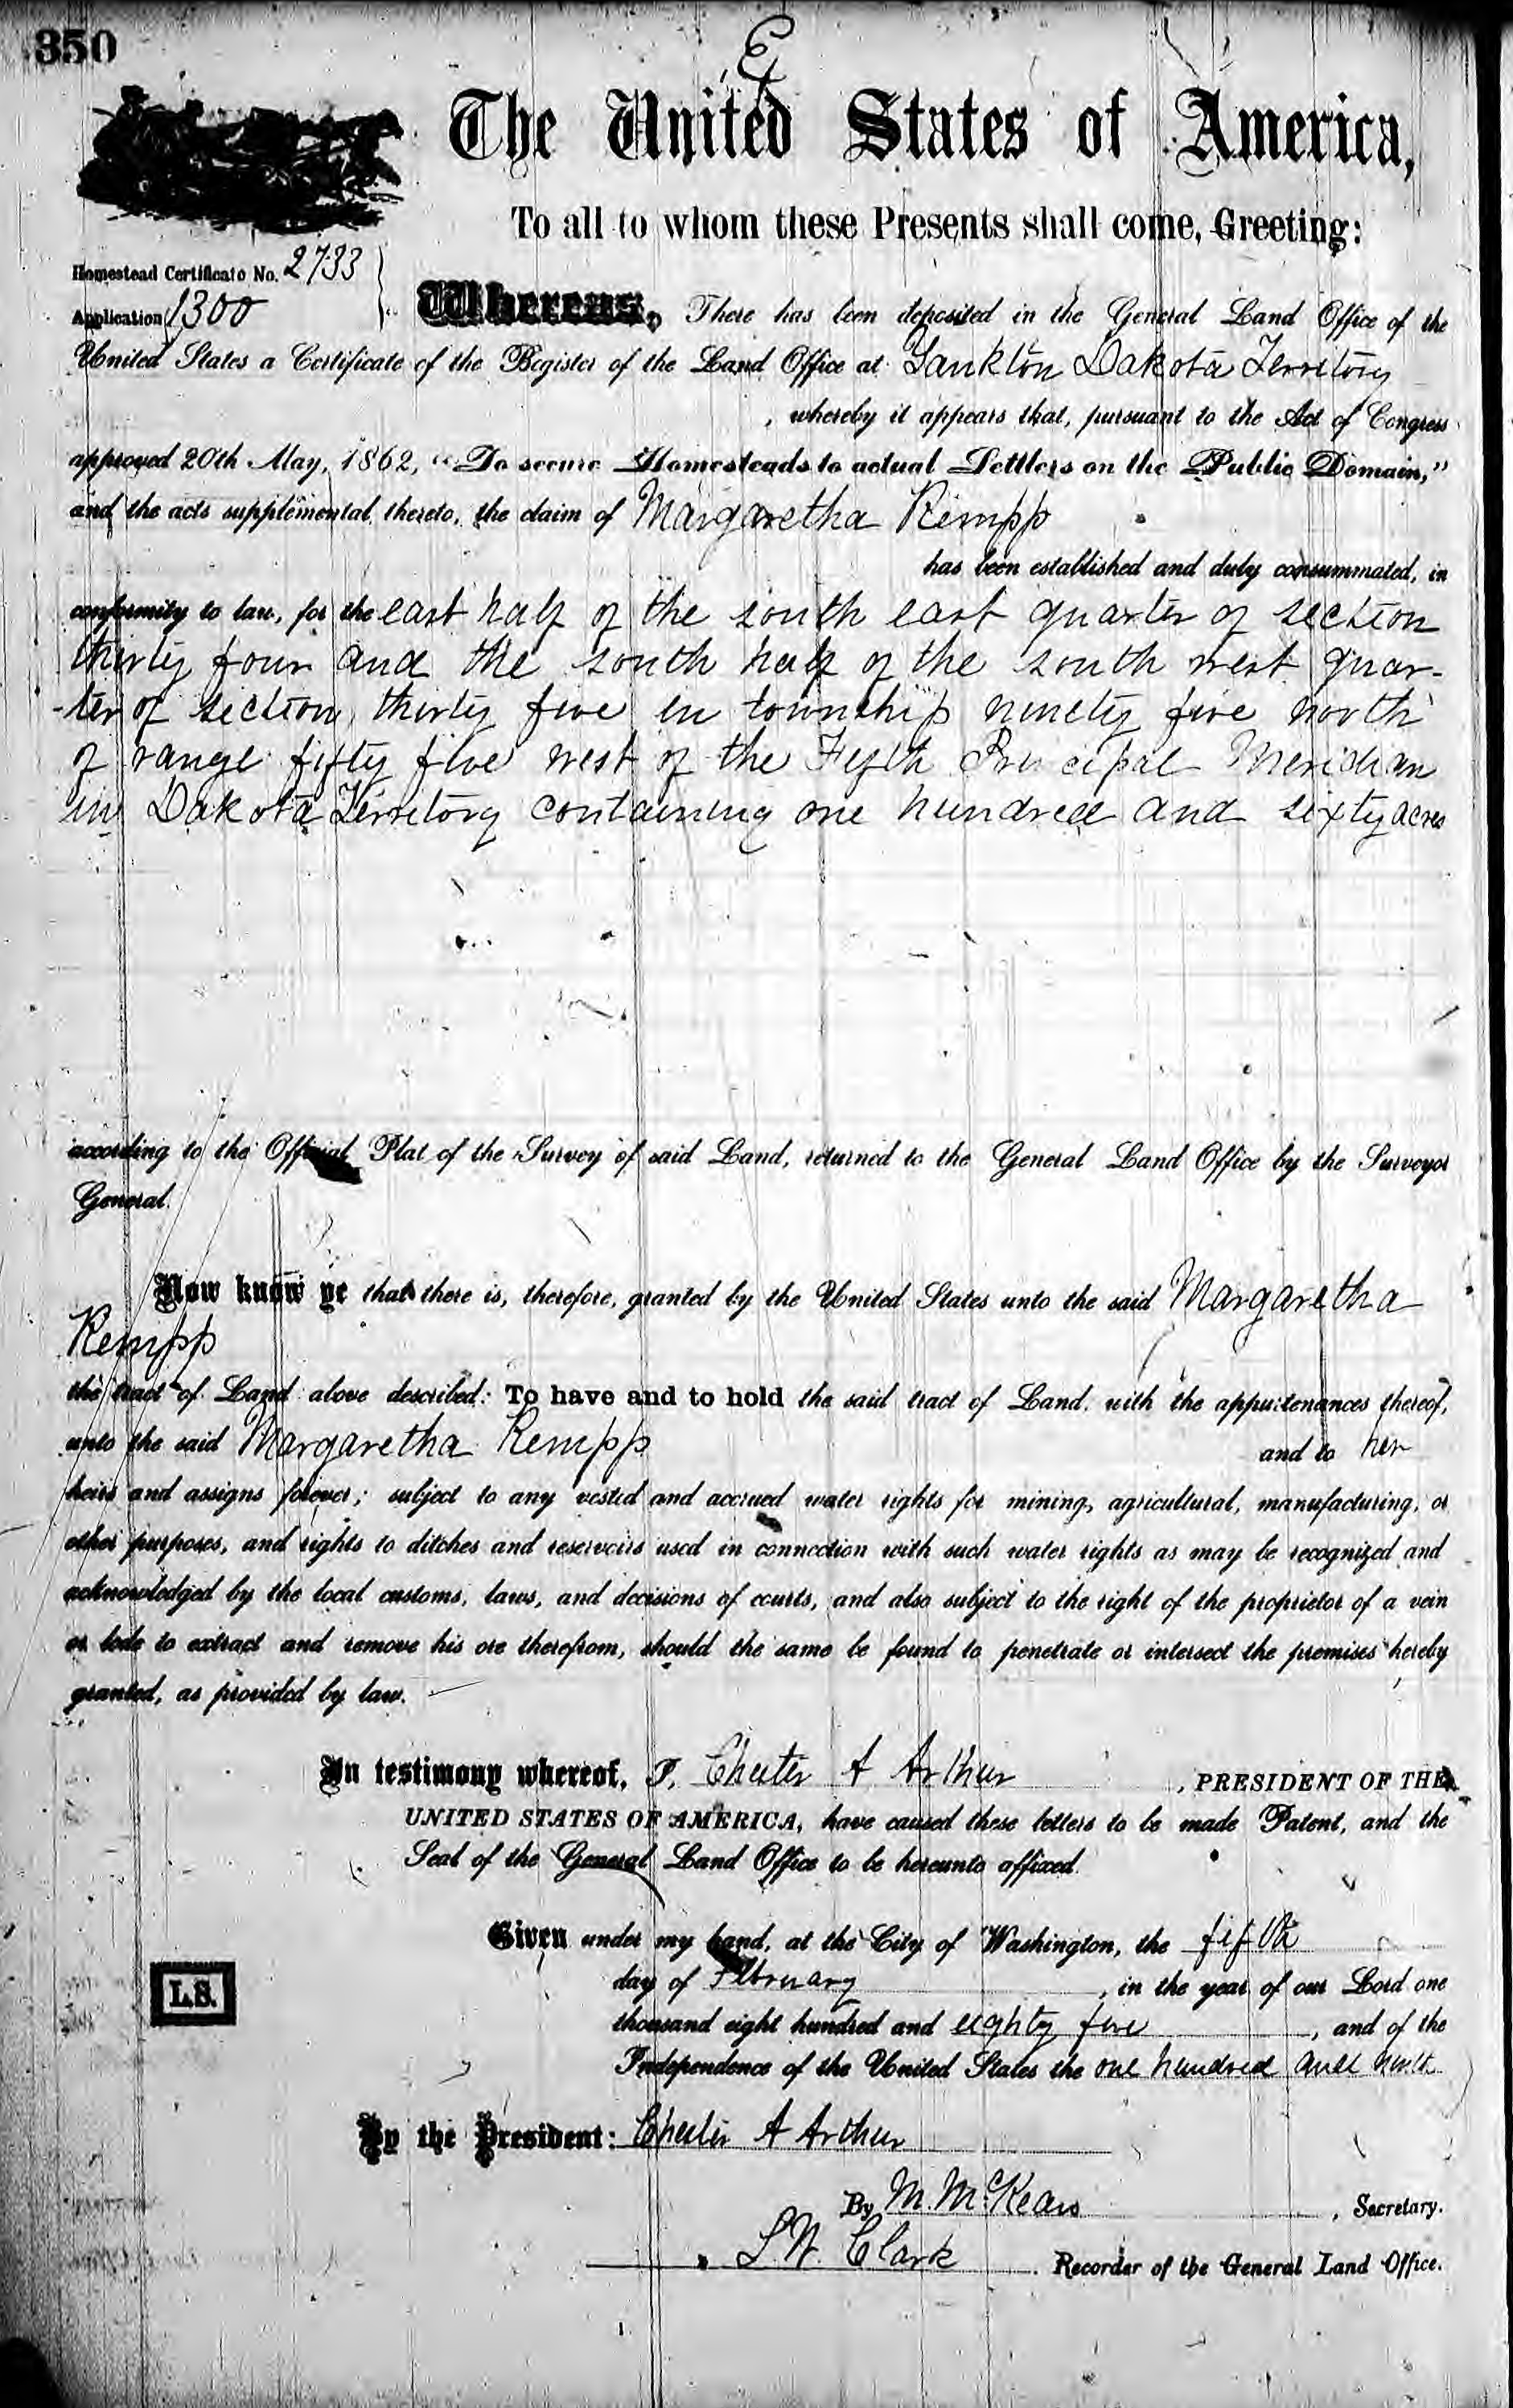 350
E
The United States of America,
To all to whom these Presents shall come, Greeting:
Homestead Certificate No. 2733
Application 1300
Whereas, There has been deposited in the General Land Office of the
United States a Certificate of the Register of the Land Office at Yankton Dakota Territory
, whereby it appears that, pursuant to the Act of Congress
approved 20th May, 1862, "To secure Homesteads to actual Settlers on the Public Domain,"
and the acts supplemental thereto, the claim of Margaretha Kempp
has been established and duly consummated, in
conformity to law, for the east half of the south east quarter of section
thirty four and the south half of the south west quar-
-ter of section thirty five in township ninety five north
of range fifty five west of the Fifth Principal Meridian
in Dakota Territory containing one hundred and sixty acres
according to the Official Plat of the Survey of said Land, returned to the General Land Office by the Surveyor
General.
Now know ye that there is, therefore, granted by the United States unto the said Margaretha
Kempp
the tract of Land above described: To have and to hold the said tract of Land, with the appurtenances thereof,
unto the said Margaretha Kempp and to her
heirs and assigns forever; subject to any vested and accrued water rights for mining, agricultural, manufacturing, or
other purposes, and rights to ditches and reservoirs used in connection with such water rights as may be recognized and
acknowledged by the local customs, laws, and decisions of courts, and also subject to the right of the proprietor of a vein
or lode to extract and remove his ore therefrom, should the same be found to penetrate or intersect the premises hereby
granted, as provided by law.
In testimony whereof, I, Chester A Arthur, PRESIDENT OF THE
UNITED STATES OF AMERICA, have caused these letters to be made Patent, and the
Seal of the General Land Office to be hereunto affixed.
Given under my hand, at the City of Washington, the fifth
day of February, in the year of our Lord one
thousand eight hundred and eighty five, and of the
Independence of the United States the one hundred and ninth
L.S.
By the President: Chester A Arthur
By M. McKean, Secretary.
S. W. Clark Recorder of the General Land Office.